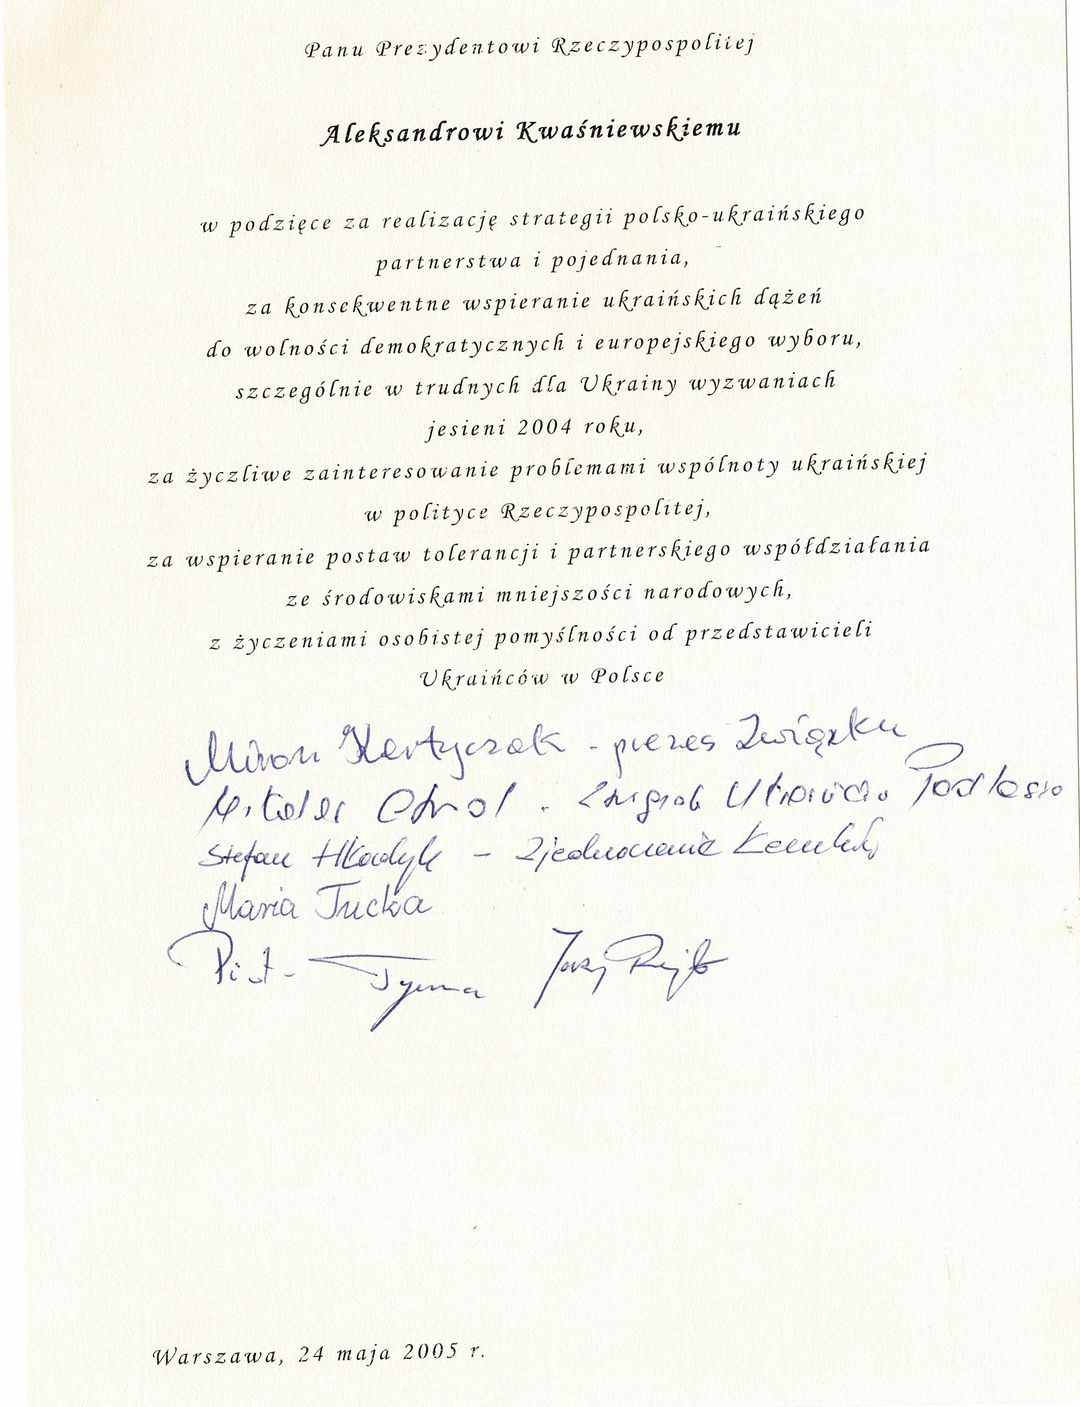 Panu Prezydentowi Rzeczypospolitej
Aleksandrowi Kwaśniewskiemu
w podzięce za realizację strategii polsko-ukraińskiego
partnerstwa i pojednania,
za konsekwentne wspieranie ukraińskich dążeń
do wolności demokratycznych i europejskiego wyboru,
szczególnie w trudnych dla Ukrainy wyzwaniach
jesieni 2004 roku,
za życzliwe zainteresowanie problemami wspólnoty ukraińskiej
w polityce Rzeczypospolitej,
za wspieranie postaw tolerancji i partnerskiego współdziałania
ze środowiskami mniejszości narodowych,
z życzeniami osobistej pomyślności od przedstawicieli
Ukraińców w Polsce
Miron Kertyczak - prezes Związku
Podlasia
Stefan Hładyk - Zjednoczenie Łemków
Maria Tucka
Piotr Tyma Jerzy Rejt
Warszawa, 24 maja 2005 r.